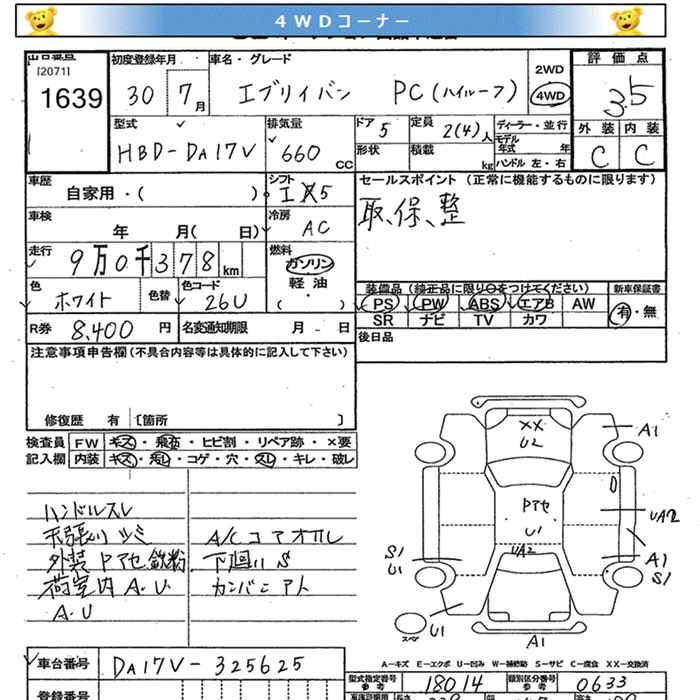 4WDコーナー
出品番号 初度登録年月 車名・グレード 2WD 評価点
[2071]
1639 30 7月 エブリイバン PC(ハイルーフ) 4WD 3.5
型式 排気量 ドア 5 定員 2(4)人 ディーラー・並行 外装 内装
HBD-DA17V 660cc 形状 積載 kg モデル年式 年 C C
ハンドル 左・右
車歴 シフト セールスポイント (正常に機能するものに限ります)
自家用・( ) 5 取、保、整
車検 年 月( 日) 冷房 AC
走行 9万0千378km 燃料 ガソリン
軽油
・
( )
装備品 (純正品に限り○をつけてください) 新車保証書
色 ホワイト 色替 色コード 26U PS PW ABS エアB AW 有・無
SR ナビ TV カワ
R券 8,400円 名変通知期限 月 日 後日品
注意事項申告欄(不具合内容等は具体的に記入して下さい)
修復歴 有 [箇所 ]
検査員 FW キズ・飛石・ヒビ割・リペア跡・×要
記入欄 内装 キズ・汚レ・コゲ・穴・スレ・キレ・破レ
ハンドルスレ
天張り シミ A/Cコアオレ
外装 Pアセ 鉄粉 下廻り S
荷室内 A.U
A.U
XX
U2
A1
Pアセ
U1
UA2
UA2
S1
U1
A1
S1
U1
スペア
A1
A-キズ E-エクボ U-凹み W-補修跡 S-サビ C-腐食 XX-交換済
車台番号 DA17V-325625 型式指定番号 参考 18014 類別区分番号 参考 0633
登録番号